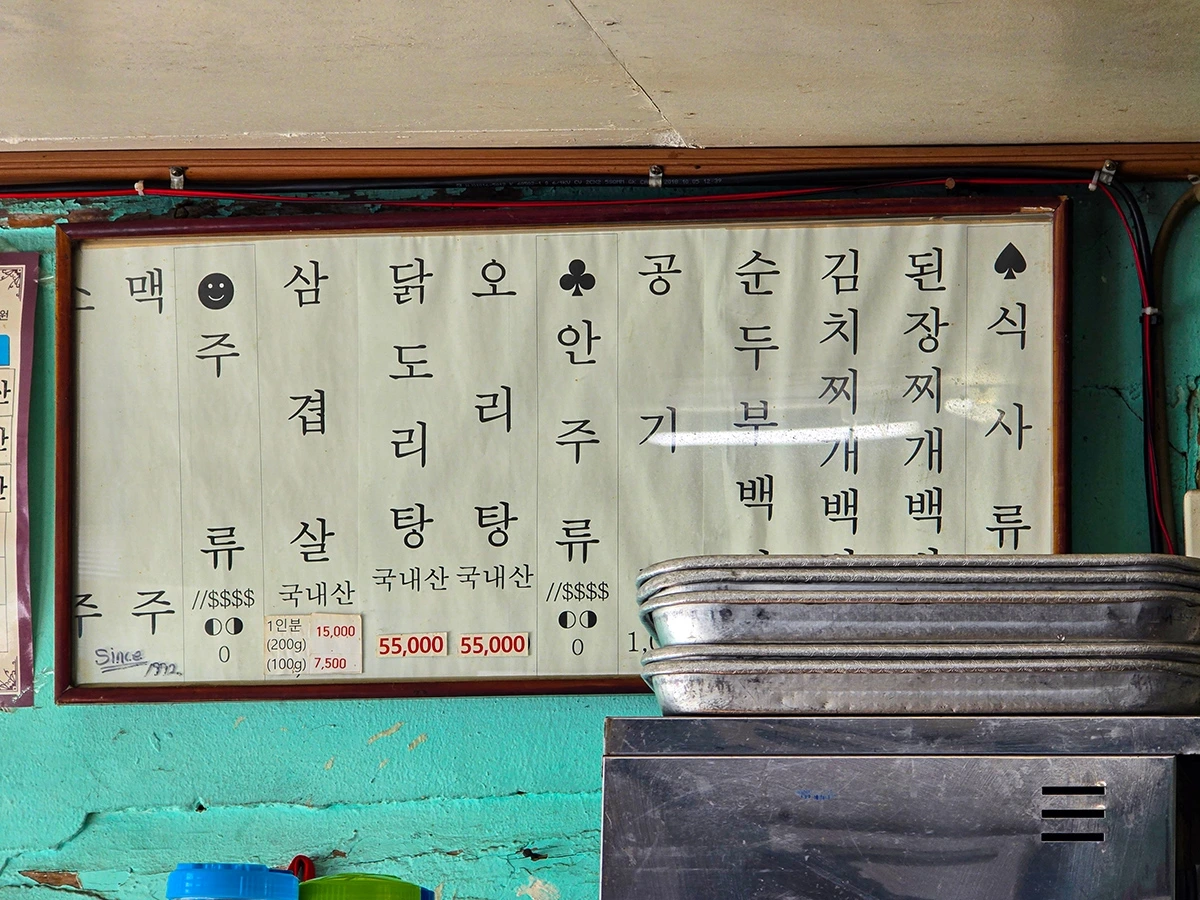 ♠식사류
된장찌개백
김치찌개백
순두부백
공기
♣안주류
//$$$$
◐◑
0
오리탕
국내산
55,000
닭도리탕
국내산
55,000
삼겹살
국내산
1인분
(200g) 15,000
(100g) 7,500
☻주류
//$$$$
◐◑
0
맥주
주
Since 1992.